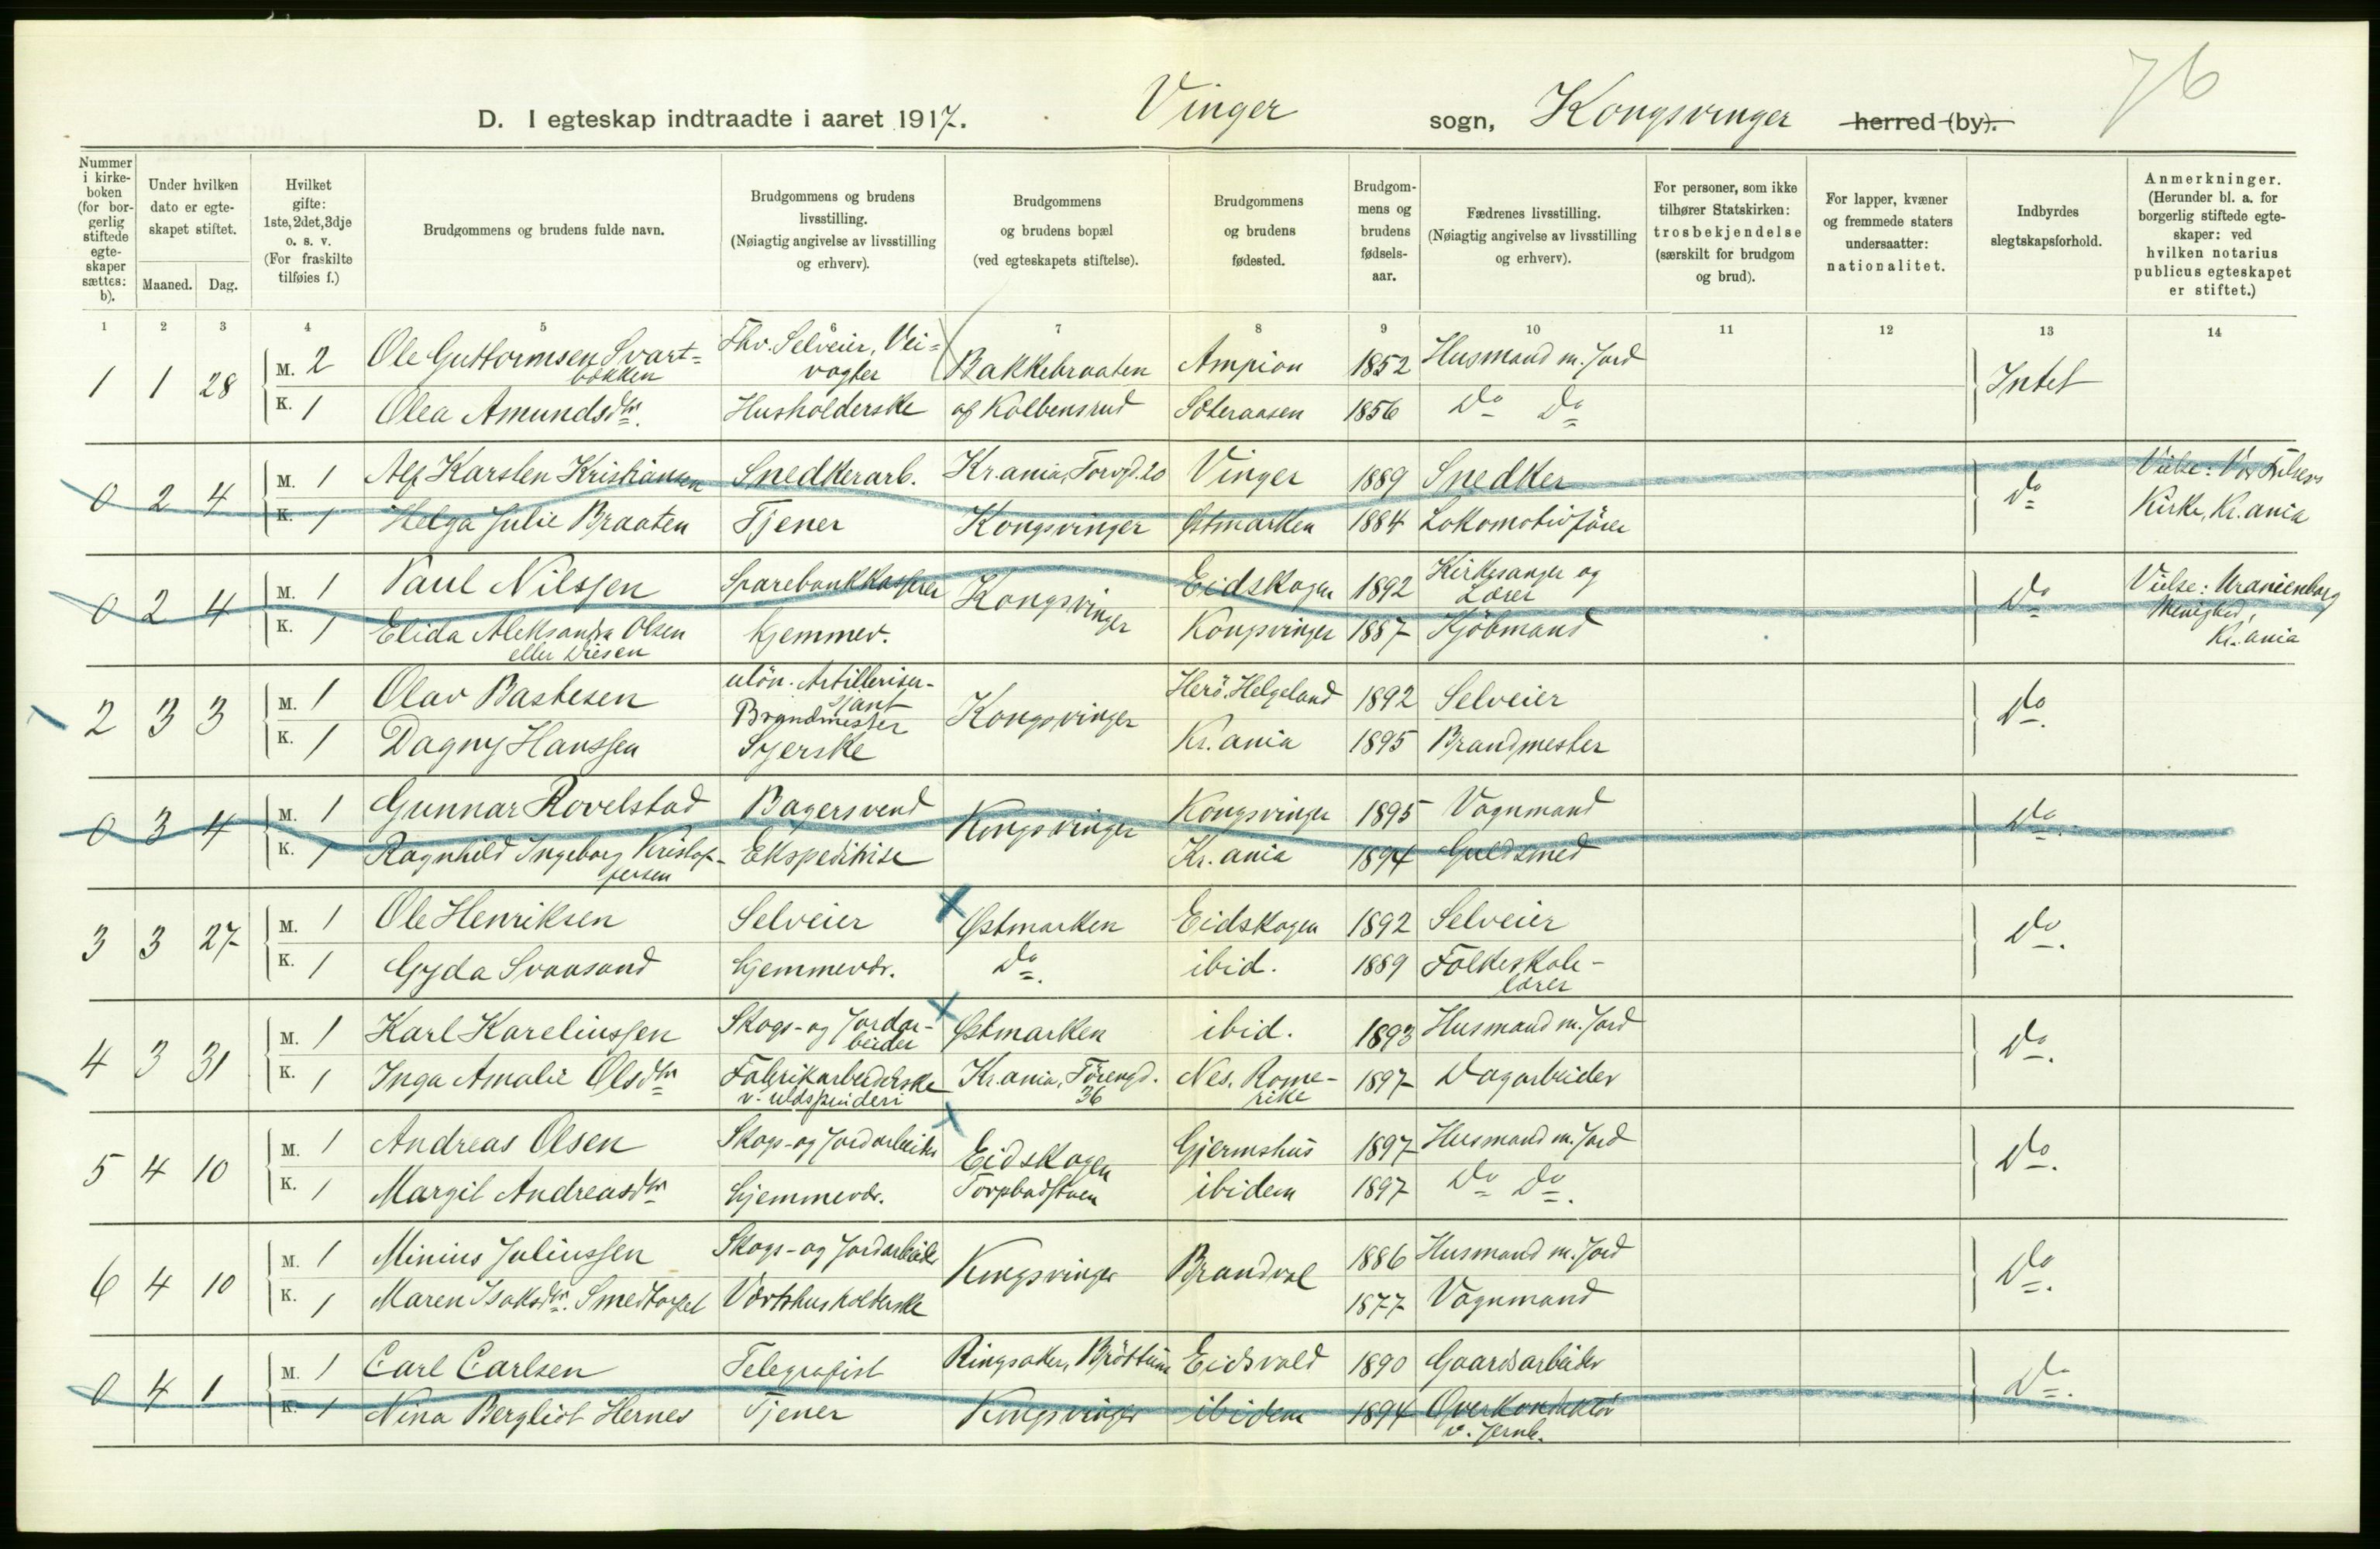 76
D. I egteskap indtraadte i aaret 1917. Vinger sogn, Kongsvinger herred (by).
Nummer i kirkeboken (for borgerlig stiftede egteskaper sættes: b).
Under hvilken dato er egteskapet stiftet.
Maaned. Dag.
Hvilket gifte: 1ste, 2det, 3dje o. s. v. (For fraskilte tilføies f.)
Brudgommens og brudens fulde navn.
Brudgommens og brudens livsstilling. (Nøiagtig angivelse av livsstilling og erhverv).
Brudgommens og brudens bopæl (ved egteskapets stiftelse).
Brudgommens og brudens fødested.
Brudgommens og brudens fødselsaar.
Fædrenes livsstilling. (Nøiagtig angivelse av livsstilling og erhverv).
For personer, som ikke tilhører Statskirken: trosbekjendelse (særskilt for brudgom og brud).
For lapper, kvæner og fremmede staters undersaatter: nationalitet.
Indbyrdes slegtskapsforhold.
Anmerkninger. (Herunder bl. a. for borgerlig stiftede egteskaper: ved hvilken notarius publicus egteskapet er stiftet.)
1 2 3 4 5 6 7 8 9 10 11 12 13 14
1 1 28 M. 2 Ole Guttormsen Svartbækken Fhv. Selveier, Veivogter Bakkebraaten Ampion 1852 Husmand m. Jord Intet
K. 1 Olea Amundsdtr. Husholderske af Kolbensrud Sæteraasen 1856 Do Do
0 2 4 M. 1 Alf Karsten Kristiansen Snedkerarb. Kr.ania, Torvgd. 20 Vinger 1889 Snedker Do Vielse: Vor Frelsers
K. 1 Helga Julie Braaten Tjener Kongsvinger Østmarken 1884 Lokomotivfører Kirke, Kr.ania
0 2 4 M. 1 Paul Nilssen Sparebankkasserer Kongsvinger Eidskogen 1892 Kirkesanger og Lærer Do Vielse: Uranienborg Menighed,
K. 1 Elida Aleksandra Olsen eller Diesen hjemmev. Kongsvinger 1887 Kjøbmand Kr.ania
2 3 3 M. 1 Olav Bastesen uløn. Artillerisersjant Kongsvinger Herö, Helgeland 1892 Selveier Do.
Brandmester
K. 1 Dagny Hanssen Syerske Kr.ania 1895 Brandmester
0 3 4 M. 1 Gunnar Rovelstad Bagersvend Kongsvinger Kongsvinger 1895 Vognmand Do.
K. 1 Ragnhild Ingeborg Kristoffersen Ekspeditrise Kr.ania 1894 Guldsmed
3 3 27 M. 1 Ole Henriksen Selveier Østmarken Eidskogen 1892 Selveier Do.
K. 1 Gyda Svaasand hjemmevær. Do. ibid. 1889 Folkeskolelærer
4 3 31 M. 1 Karl Kareliussen Skogs- og Jordarbeider Østmarken ibid. 1893 Husmand m. Jord Do.
K. 1 Inga Amalie Olsdtr Fabrikarbeiderske v. uldspinderi Kr.ania, 36 Nes, Romerike 1897 Dagarbeider
5 4 10 M. 1 Andreas Olsen Skogs- og Jordarbeider Eidskogen Gjermshus 1897 Husmand m. Jord Do.
K. 1 Margit Andreasdtr hjemmevær. ibidem 1897 Do Do.
6 4 10 M. 1 Minius Juliussen Skogs- og Jordarbeider Kongsvinger Brandval 1886 Husmand m. Jord Do.
K. 1 Maren Isaksdtr. Smedtorpet Værtshusholderske 1877 Vognmand
0 4 1 M. 1 Carl Carlsen Telegrafist Ringsaker, Brøttum Eidsvold 1890 Gaardsarbeider Do.
K. 1 Nina Bergliot Hernes Tjener Kongsvinger ibidem 1894 Overkonduktør v. Jernb.